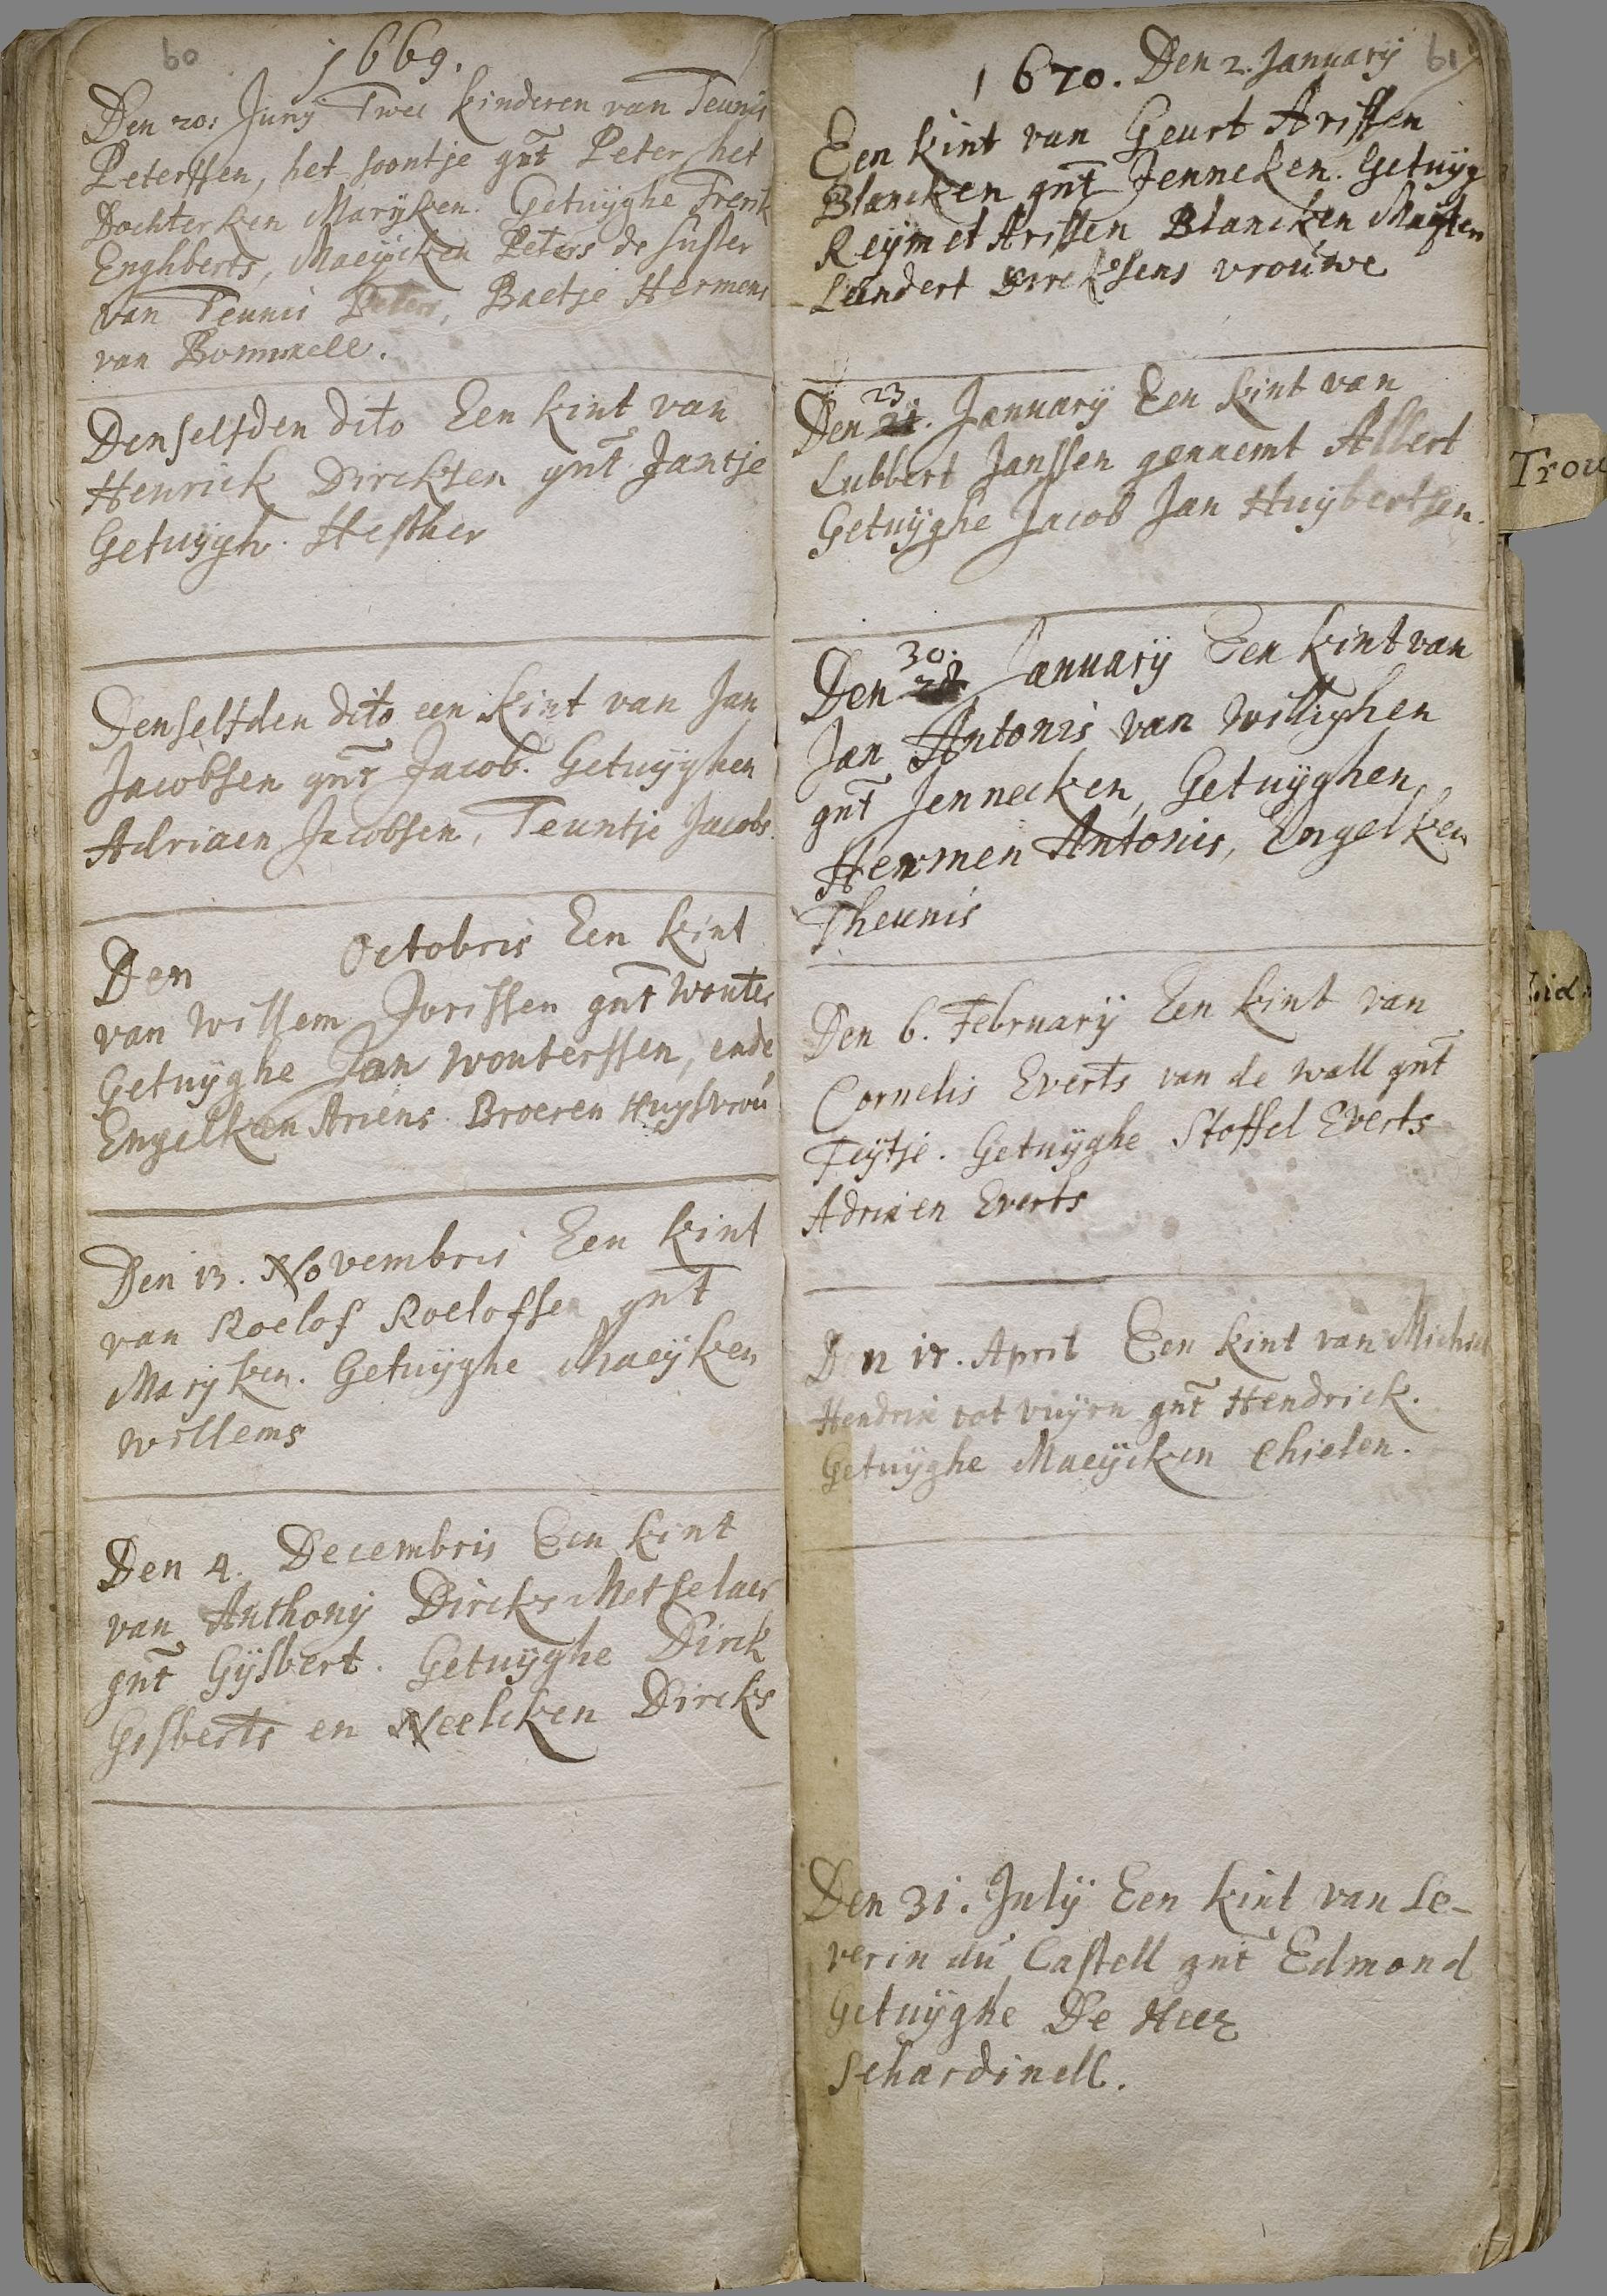 60
1669.
Den 20. Junij Twee kinderen van Teunis
Peterssen, het soontje gnt Peter, het
Dochterken Marijken. Getuijghe Frerik
Enghberts, Maeijcken Peters de suster
van Teunis Peters, Baetje Hermens
van Bommele.
Denselfden dito Een kint van
Henrick Dircksen gnt Jantje
Getuijgh. Hesther
Denselfden dito een kint van Jan
Jacobsen gnt Jacob. Getuijghen
Adriaen Jacobsen, Teuntje Jacobs.
Den Octobris Een kint
van Willem Jorissen gnt Wouter
Getuijghe Jan Wouterssen, ende
Engelken Ariens Broeren Huijsvrou
Den 13. Novembris Een kint
van Roelof Roelofsen gnt
Marijken. Getuijghe Maeijken
Willems
Den 4. Decembris Een kint
van Anthonij Dircks Metselaer
gnt Gijsbert. Getuijghe Dirck
Gisberts en Neelcken Dircks
61
1670. Den 2. Januarij
Een kint van Geurt Arissen
Blancken gnt Jenneken. Getuijg
Reijm et Arissen Blancken
Leendert Dircksens vrouwe
Den 23. Januarij Een kint van
Lubbert Janssen genaemt Albert
Getuijghe Jacob Jan Huijbertsen.
Den 30. Januarij Een kint van
Jan Antonis van Willighen
gnt Jennecken, Getuijghen
Hermen Antonis, Engelken
Theunis
Den 6. Februarij Een kint van
Cornelis Everts van de Wall gnt
Feijtje. Getuijghe Stoffel Everts
Adriaen Everts
Den April Een kint van Michiel
Hendrix tot vuijrn gnt Hendrick.
Getuijghe Maeijcken Chielen.
Den 31. Julij Een kint van Se-
verin du Castell gnt Edmond
Getuijghe De Heer
Schardinell.
Trou